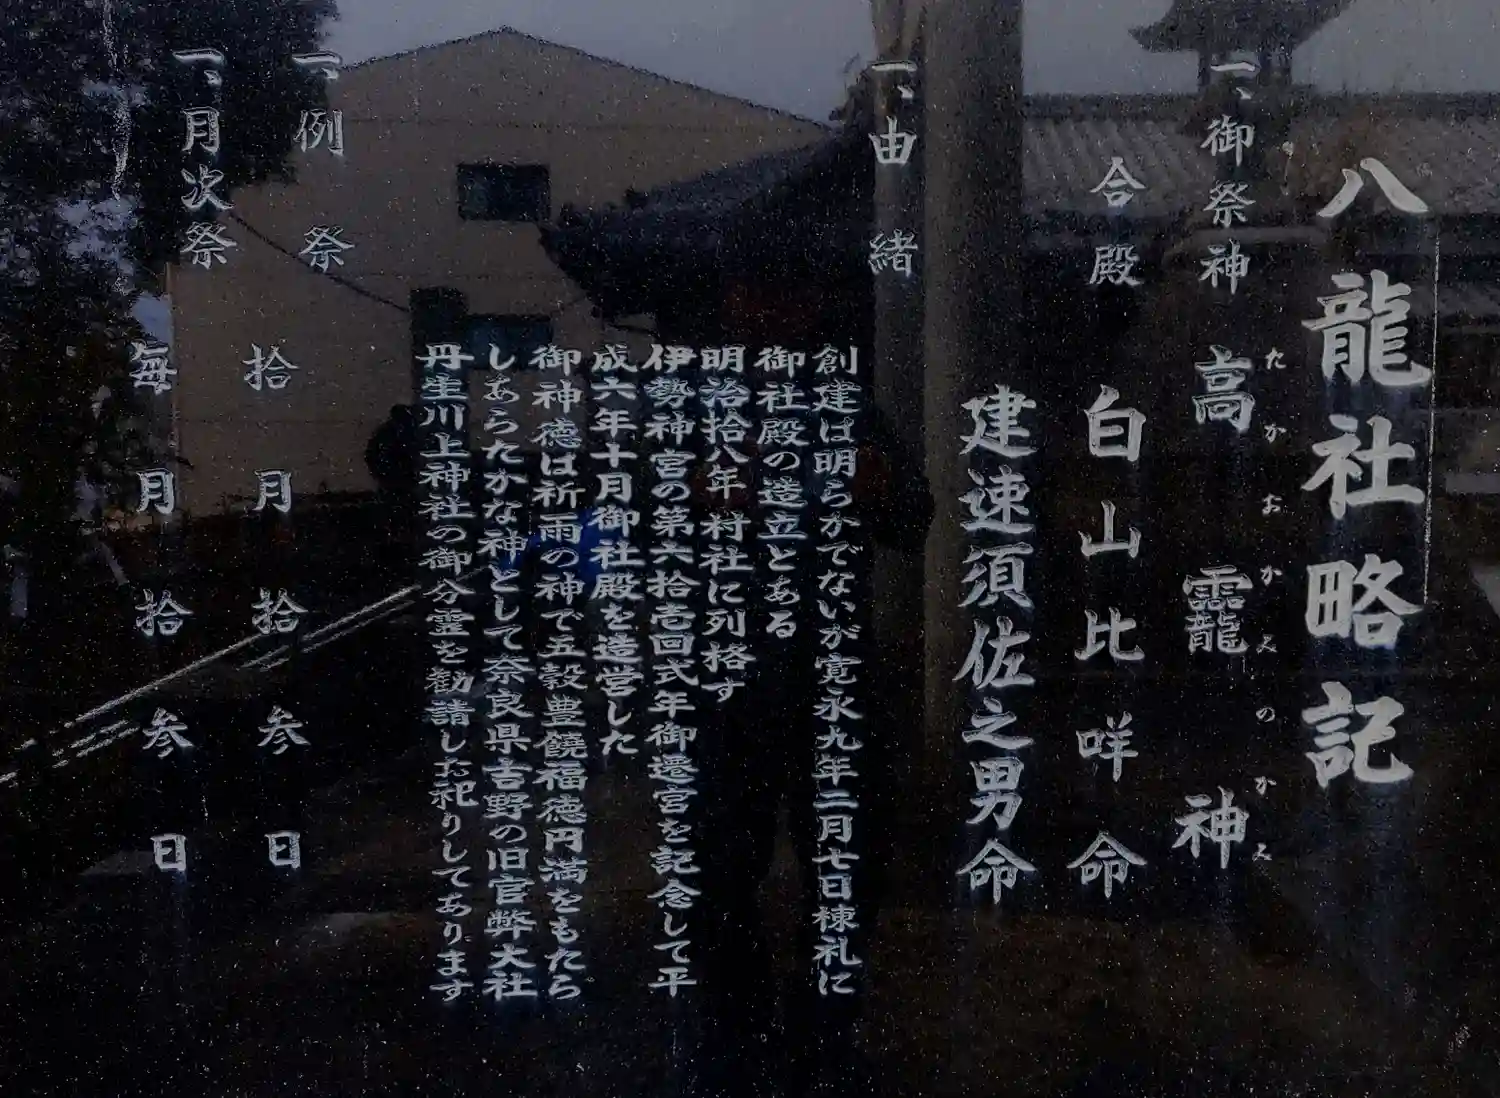 八龍社略記
一、御祭神 高龗神
たかおかみのかみ
合殿 白山比咩命
建速須佐之男命
一、由緒
創建は明らかでないが寛永九年二月七日棟礼に
御社殿の造立とある
明治拾八年村社に列格す
伊勢神宮の第六拾壱回式年御遷宮を記念して平
成六年十月御社殿を造営した
御神徳は祈雨の神で五穀豊饒福徳円満をもたら
しあらたかな神として奈良県吉野の旧官弊大社
丹生川上神社の御分霊を勧請しお祀りしてあります
一、例祭 拾月拾参日
一、月次祭 毎月拾参日